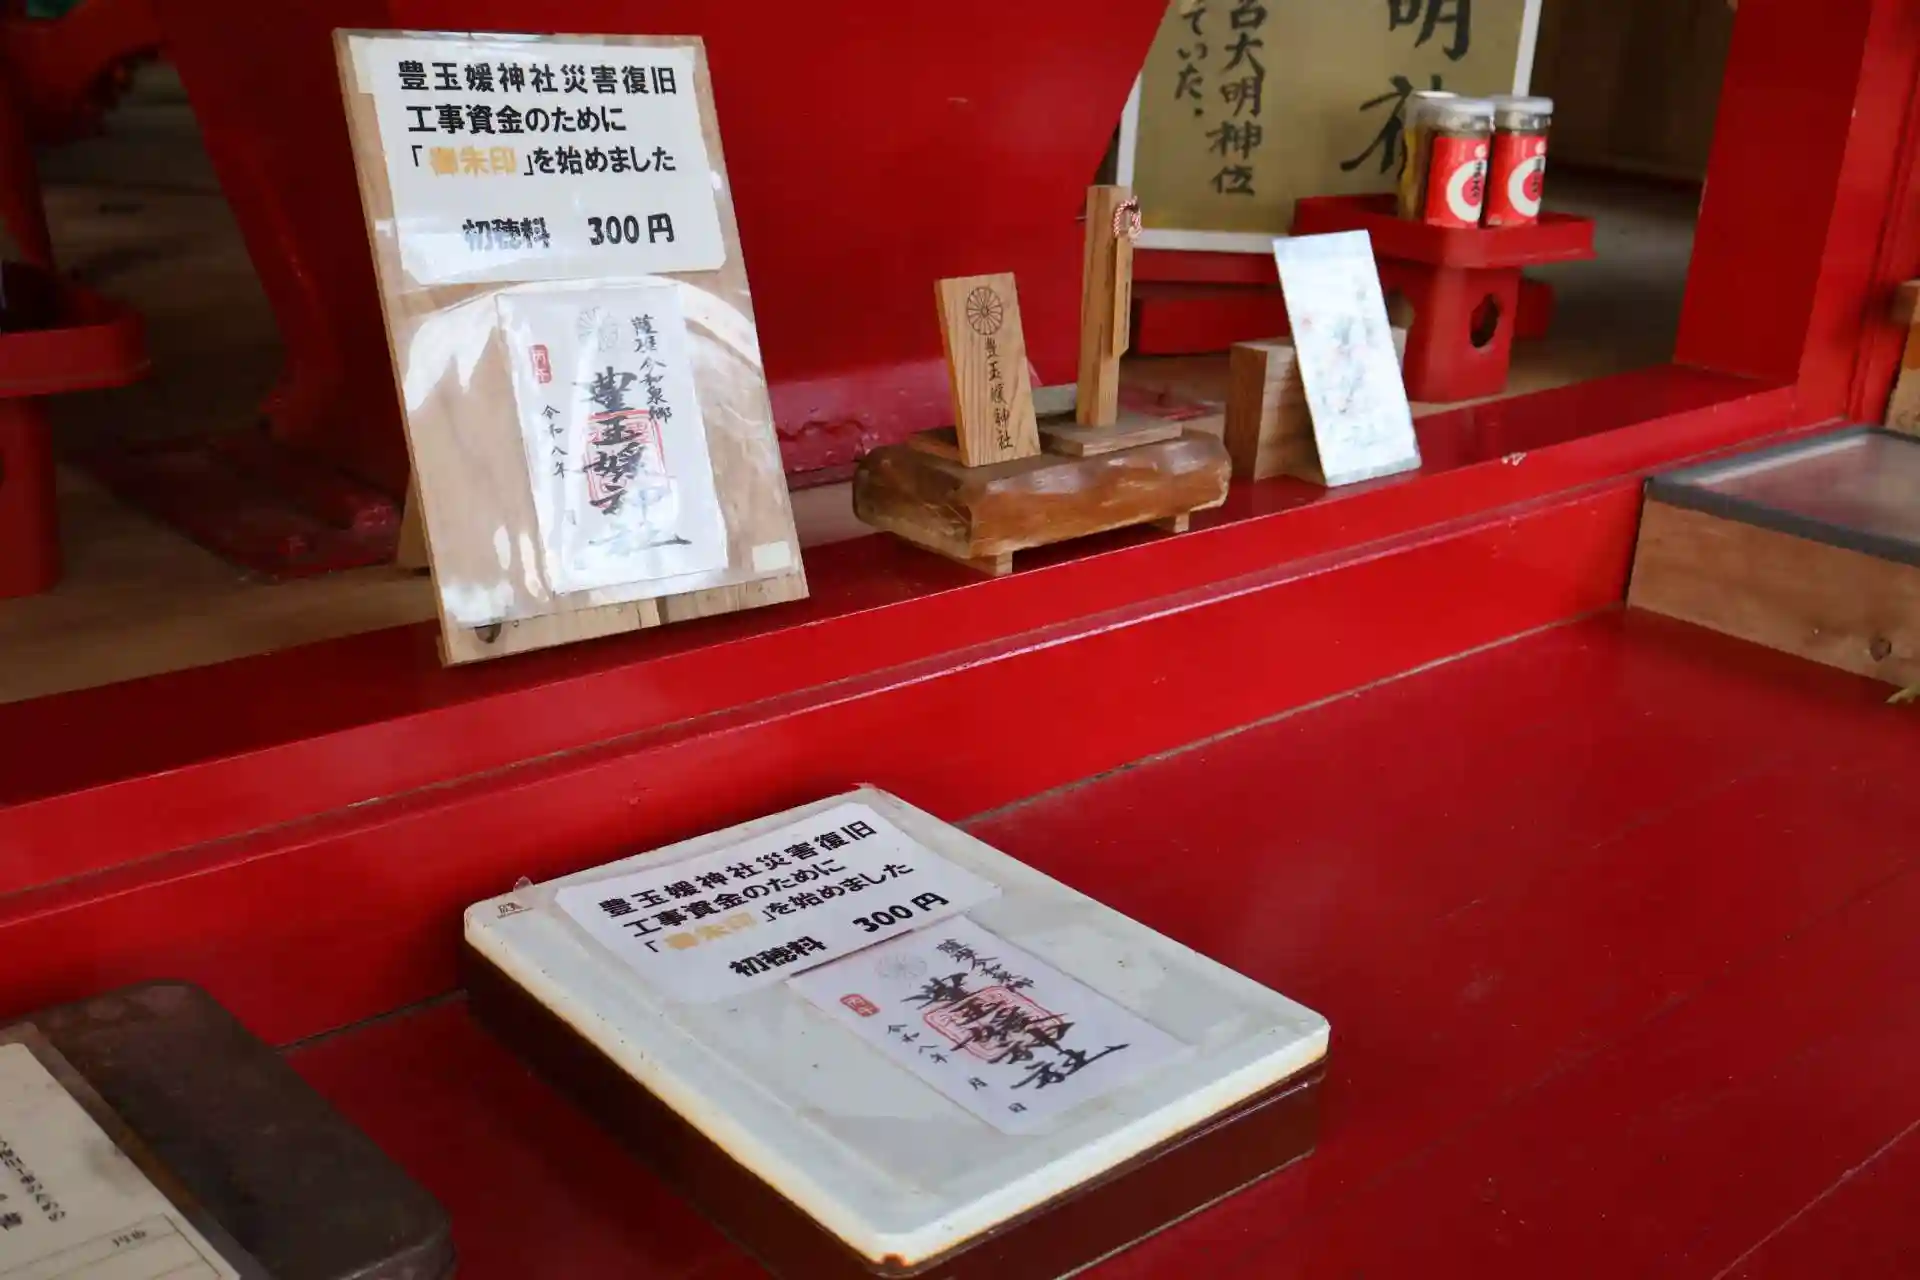 豊玉媛神社災害復旧
工事資金のために
「御朱印」を始めました
初穂料 300円
薩摩今和泉郷
豊玉媛神社
丙午
令和八年
月
豊玉媛神社
呂大明神位
ていた。
明神
豊玉媛神社災害復旧
工事資金のために
「御朱印」を始めました
初穂料 300円
薩摩今和泉郷
豊玉媛神社
丙午
令和八年 月 日